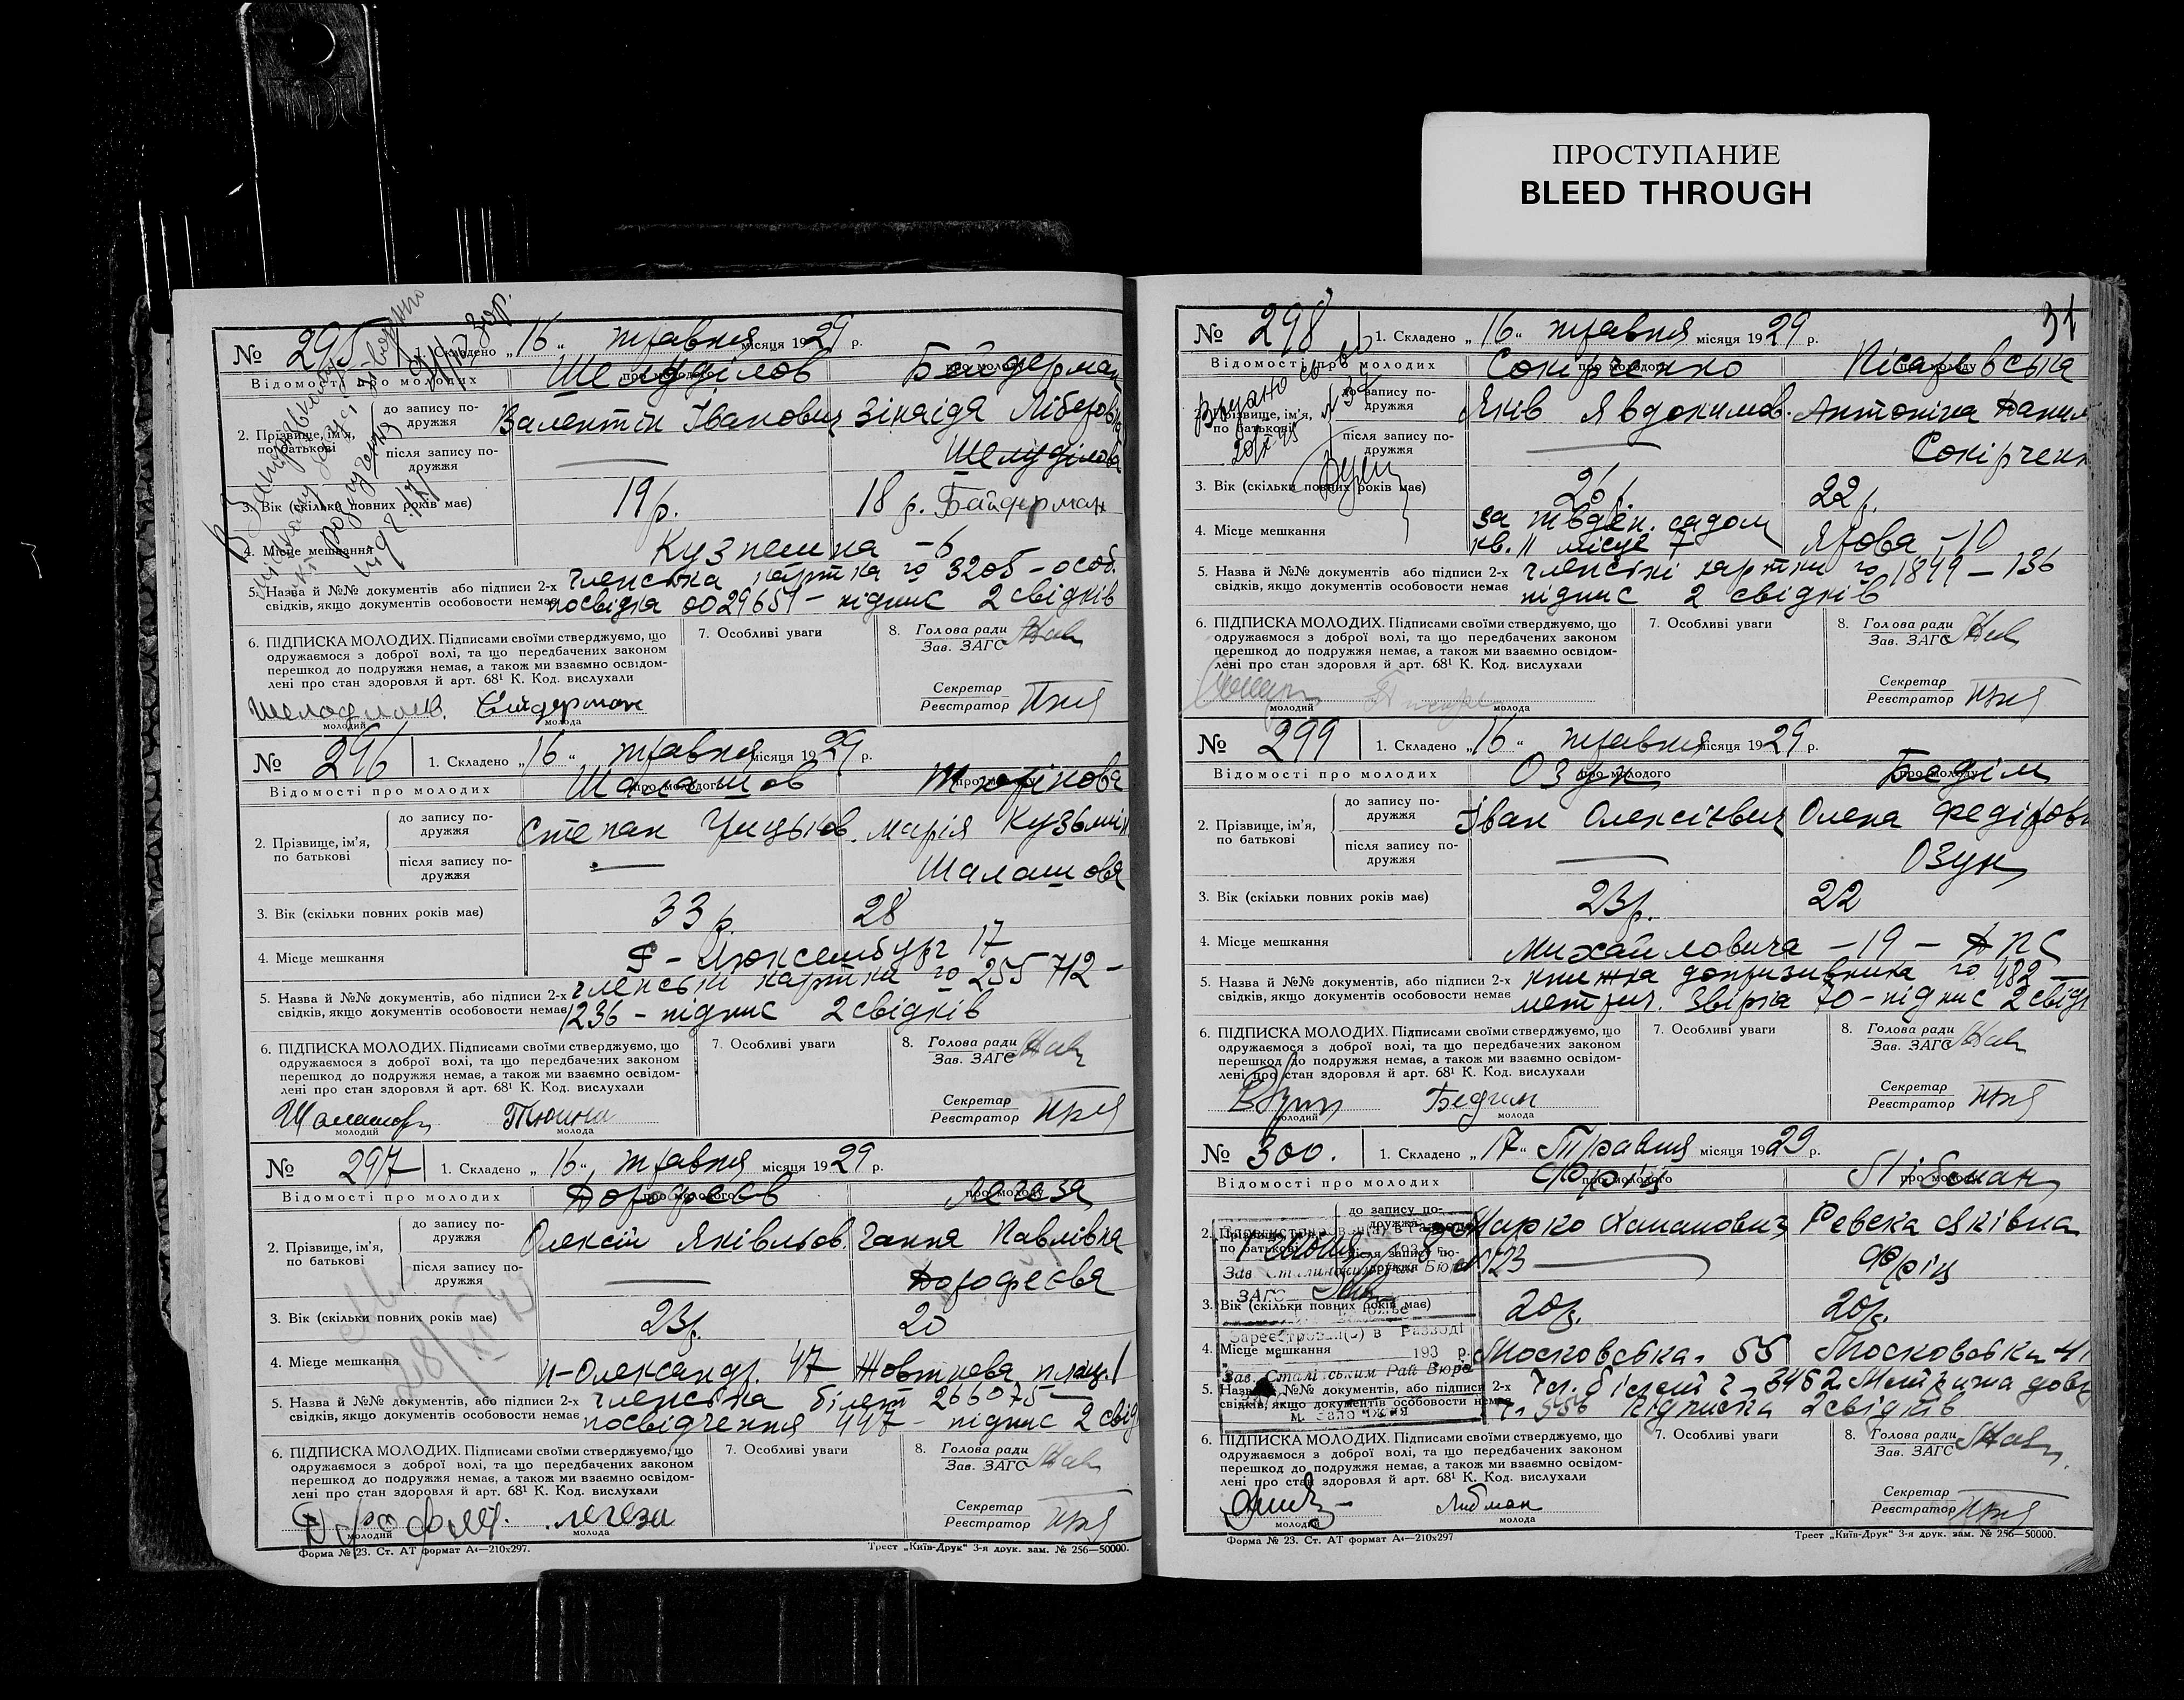 ПРОСТУПАНИЕ
BLEED THROUGH
№ 295 1. Складено „16“ травня місяця 1929 р.
Відомості про молодих про молодого про молоду
Шелуділов Байдерман
2. Прізвище, ім'я, по батькові
до запису подружжя Валентін Іванович Зінаіда Ліберовна
після запису подружжя — Шелуділова
3. Вік (скільки повних років має) 19 р. 18 р. Байдерман
4. Місце мешкання Кузнешна - 6
5. Назва й №№ документів або підписи 2-х членська картка го 3205 - особ.
свідків, якщо документів особовости немає посвідка 0029651 - підпис 2 свідків
6. ПІДПИСКА МОЛОДИХ. Підписами своїми стверджуємо, що 7. Особливі уваги 8. Голова ради
одружаємося з доброї волі, та що передбачених законом Зав. ЗАГС
перешкод до подружжя немає, а також ми взаємно освідом-
лені про стан здоровля й арт. 68¹ К. Код. вислухали Секретар
Реєстратор
Байдерман
молодий молода
№ 296 1. Складено „16“ травня місяця 1929 р.
Відомості про молодих про молодого про молоду
Шалашов Тюрінова
2. Прізвище, ім'я, по батькові
до запису подружжя Степан Грицьков. Марія Кузьмін
після запису подружжя — Шалашова
3. Вік (скільки повних років має) 33 р. 28
4. Місце мешкання Р - Люксембург 17
5. Назва й №№ документів, або підписи 2-х членські картки го 255712 -
свідків, якщо документів особовости немає 1236 - підпис 2 свідків
6. ПІДПИСКА МОЛОДИХ. Підписами своїми стверджуємо, що 7. Особливі уваги 8. Голова ради
одружаємося з доброї волі, та що передбачених законом Зав. ЗАГС
перешкод до подружжя немає, а також ми взаємно освідом-
лені про стан здоровля й арт. 68¹ К. Код. вислухали Секретар
Реєстратор
молодий молода
№ 297 1. Складено „16“ травня місяця 1929 р.
Відомості про молодих про молодого про молоду
Дорофеєв Легеза
2. Прізвище, ім'я, по батькові
до запису подружжя Олексій Яківльов. Ганна Павлівна
після запису подружжя — Дорофеєва
3. Вік (скільки повних років має) 23 р. 20
4. Місце мешкання Н-Олександр. 47 Жовтнева площ. 1
5. Назва й №№ документів, або підписи 2-х членська білет 266075 -
свідків, якщо документів особовости немає посвідчення 447 - підпис 2 свід
6. ПІДПИСКА МОЛОДИХ. Підписами своїми стверджуємо, що 7. Особливі уваги 8. Голова ради
одружаємося з доброї волі, та що передбачених законом Зав. ЗАГС
перешкод до подружжя немає, а також ми взаємно освідом-
лені про стан здоровля й арт. 68¹ К. Код. вислухали Секретар
Реєстратор
легеза
молодий молода
Форма № 23. Ст. АТ формат А4—210х297. Трест „Київ-Друк“ 3-я друк. зам. № 256—50000.
31
№ 298 1. Складено „16“ травня місяця 1929 р.
Відомості про молодих про молодого про молоду
Сокірченко Пісаревська
2. Прізвище, ім'я, по батькові
до запису подружжя Яків Явдокимов. Антоніна Данил
після запису подружжя — Сокірченк
3. Вік (скільки повних років має) 26 р. 22 р.
4. Місце мешкання за півден. садом Ярова - 10
кв. 11 місце 7
5. Назва й №№ документів або підписи 2-х членські картки го 1899 - 136
свідків, якщо документів особовости немає підпис 2 свідків
6. ПІДПИСКА МОЛОДИХ. Підписами своїми стверджуємо, що 7. Особливі уваги 8. Голова ради
одружаємося з доброї волі, та що передбачених законом Зав. ЗАГС
перешкод до подружжя немає, а також ми взаємно освідом-
лені про стан здоровля й арт. 68¹ К. Код. вислухали Секретар
Реєстратор
молодий молода
№ 299 1. Складено „16“ травня місяця 1929 р.
Відомості про молодих про молодого про молоду
Озун Бедім
2. Прізвище, ім'я, по батькові
до запису подружжя Іван Олексієвич Олена Федіровн
після запису подружжя — Озун
3. Вік (скільки повних років має) 23 р. 22
4. Місце мешкання Михайловича - 19 - ДПС
5. Назва й №№ документів, або підписи 2-х книжка допризивника го 482 -
свідків, якщо документів особовости немає метрич. Звірка 70 - підпис 2 свід
6. ПІДПИСКА МОЛОДИХ. Підписами своїми стверджуємо, що 7. Особливі уваги 8. Голова ради
одружаємося з доброї волі, та що передбачених законом Зав. ЗАГС
перешкод до подружжя немає, а також ми взаємно освідом-
лені про стан здоровля й арт. 68¹ К. Код. вислухали Секретар
Реєстратор
Бедим
молодий молода
№ 300. 1. Складено „17“ Травня місяця 1929 р.
Відомості про молодих про молодого про молоду
Фріц Лібман
2. Прізвище, ім'я, по батькові
до запису подружжя Марко Хананович Ревека Яківна
після запису подружжя — Фріц
3. Вік (скільки повних років має) 20 р. 20 р.
4. Місце мешкання Московська. 55 Московська 41
5. Назва й №№ документів, або підписи 2-х Чл. білет г - 3462 Метрична дов
свідків, якщо документів особовости немає г. 556 підписка 2 свідків
6. ПІДПИСКА МОЛОДИХ. Підписами своїми стверджуємо, що 7. Особливі уваги 8. Голова ради
одружаємося з доброї волі, та що передбачених законом Зав. ЗАГС
перешкод до подружжя немає, а також ми взаємно освідом-
лені про стан здоровля й арт. 68¹ К. Код. вислухали Секретар
Реєстратор
Либман
молодий молода
Форма № 23. Ст. АТ формат А4—210х297 Трест „Київ-Друк“ 3-я друк. зам. № 256—50000.